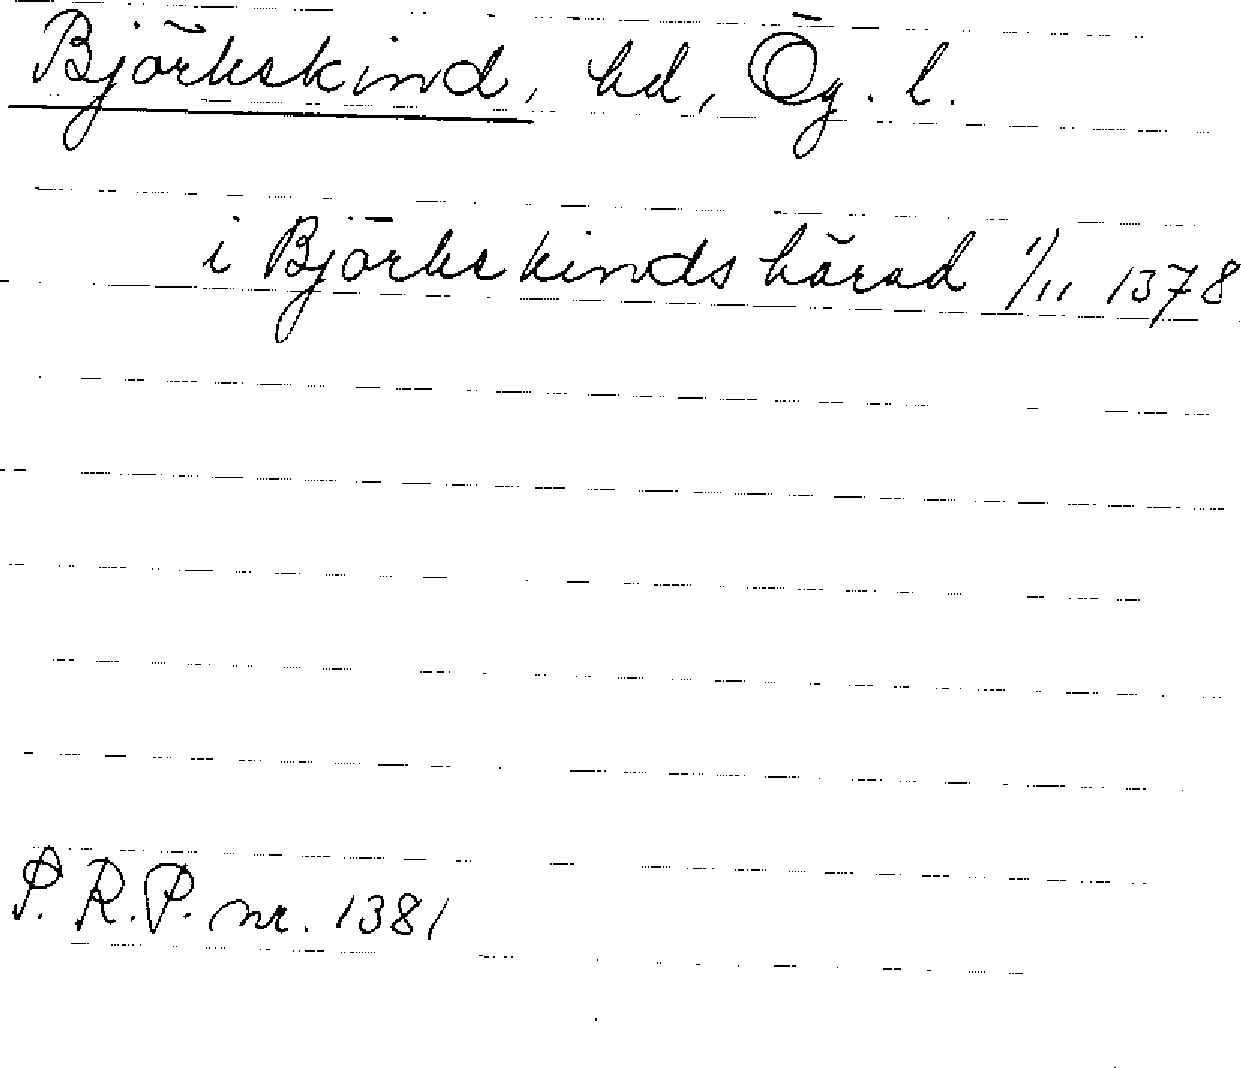 Björkskind, hd, Ög. l.
i Björkskinds härad 1/11 1378
P.R.P. nr. 1381